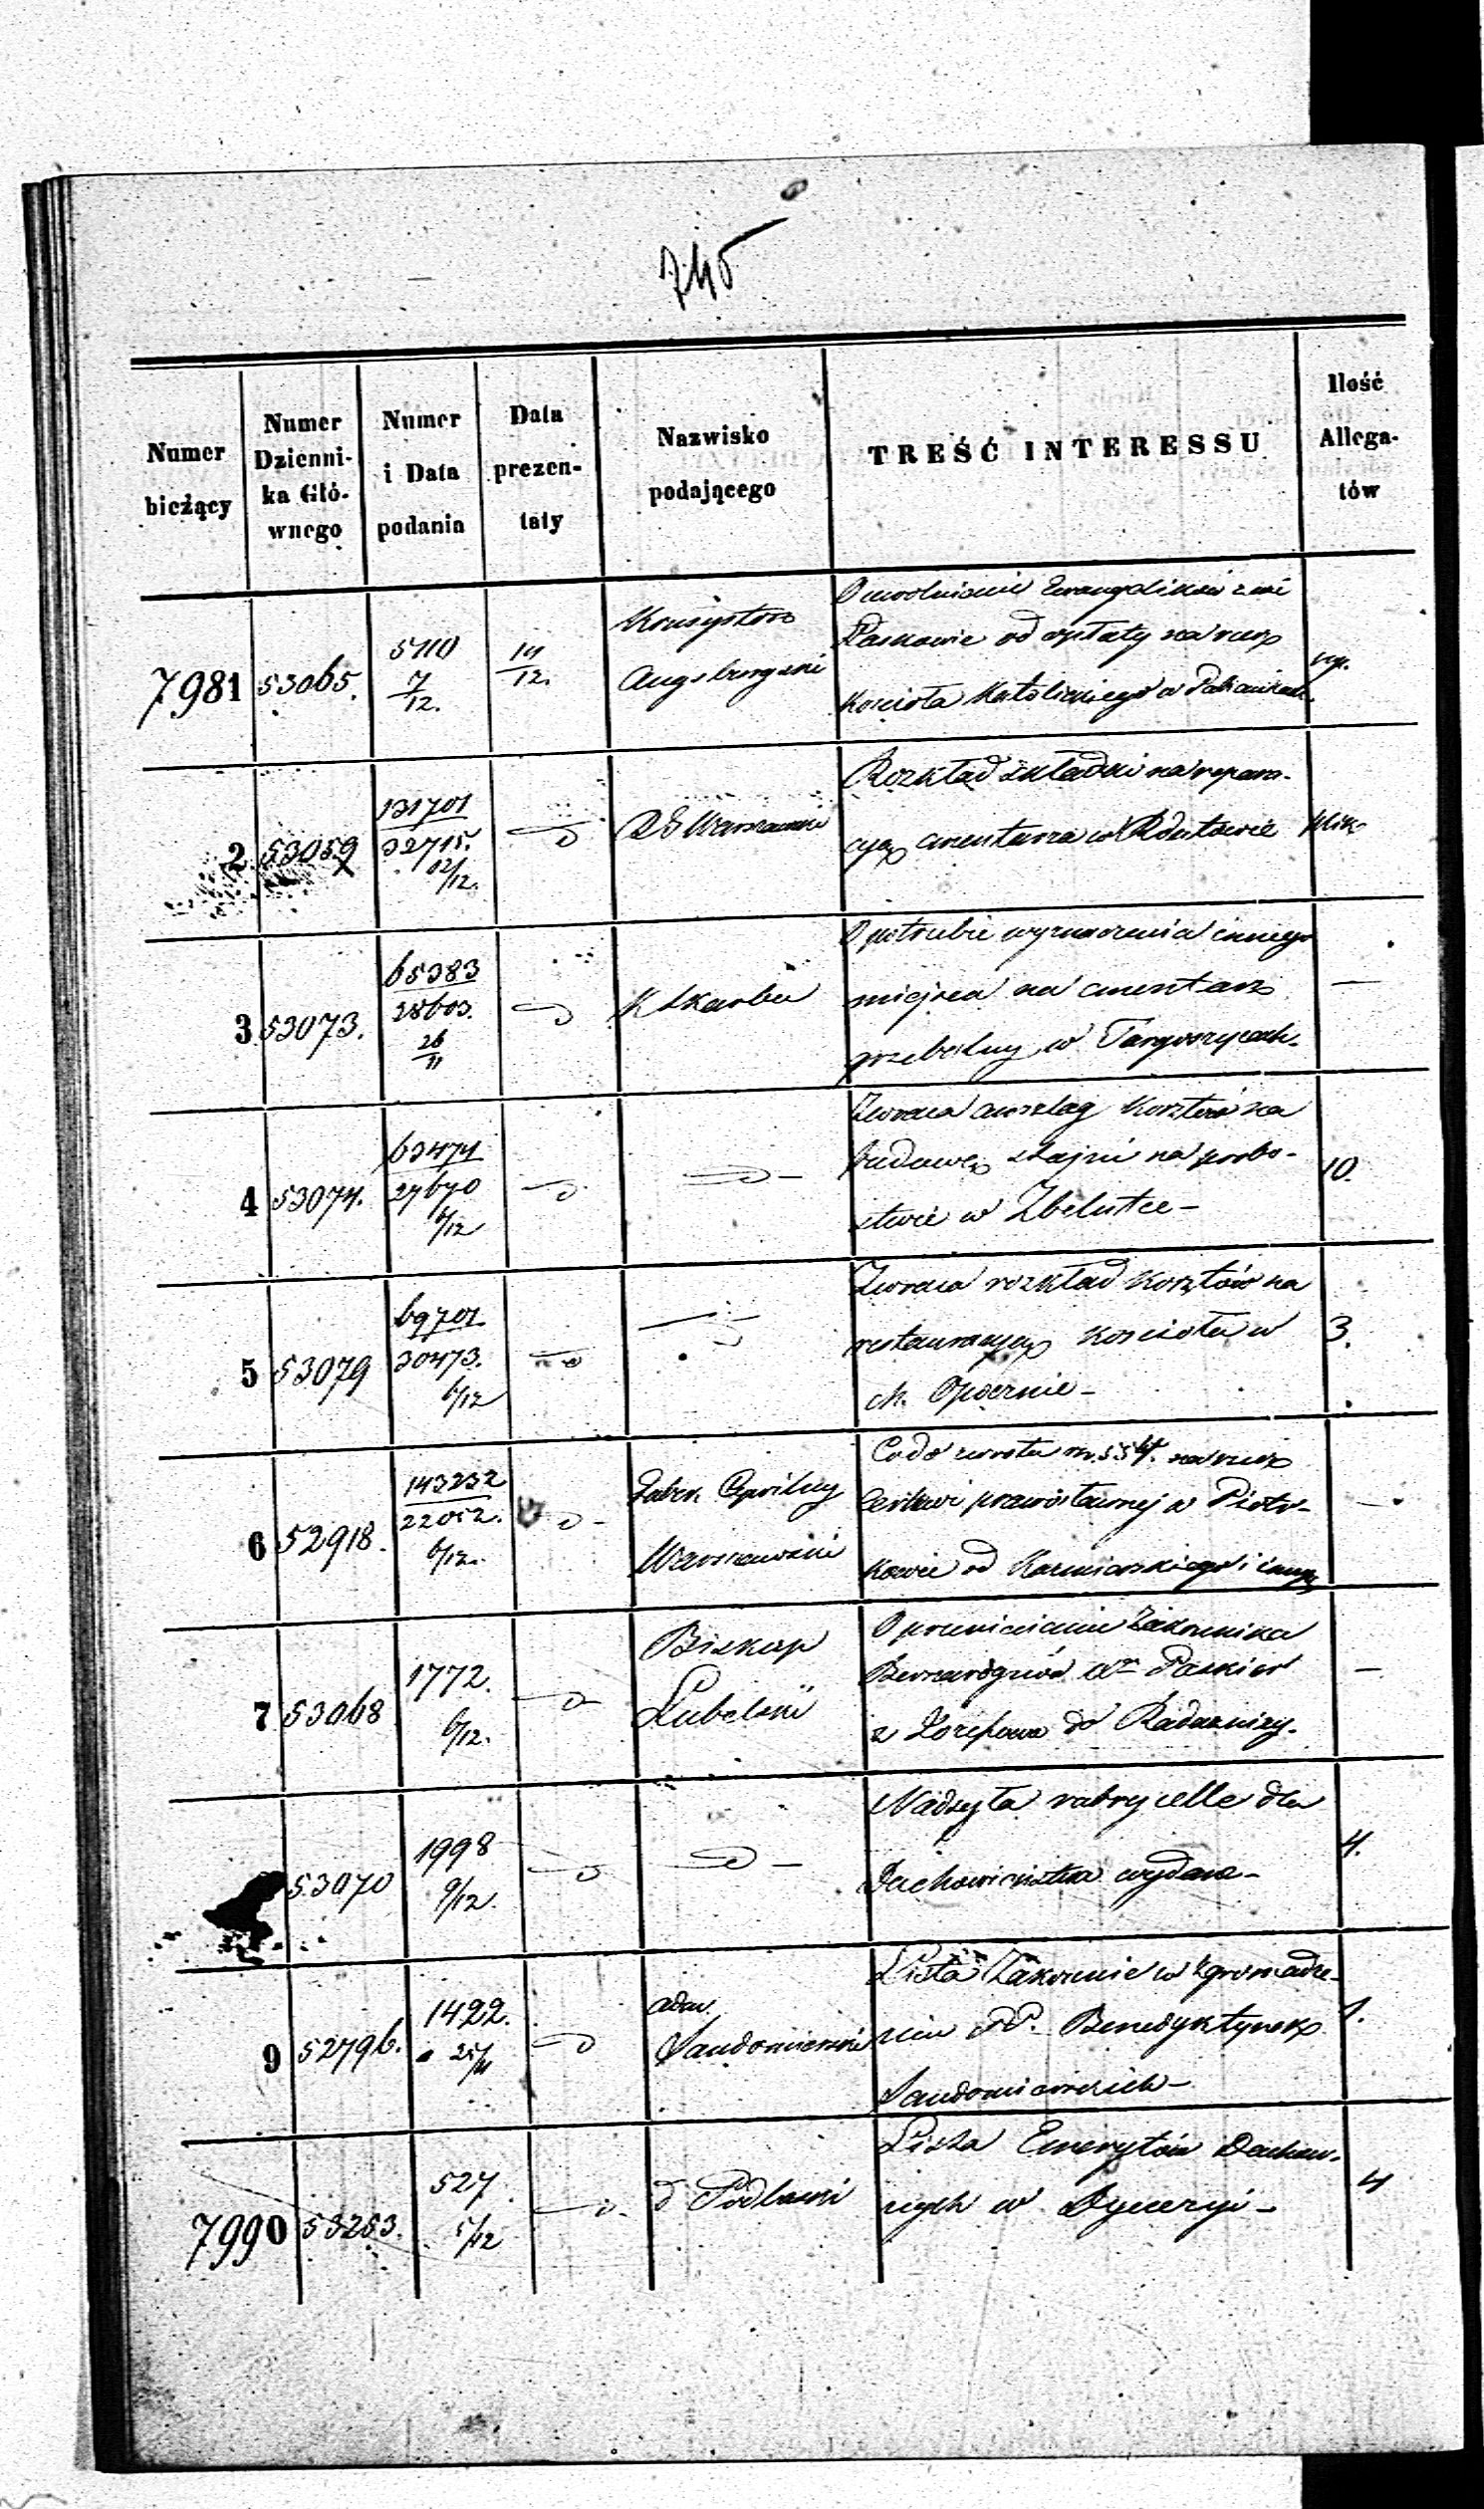 745
Numer bieżący
Numer Dzienni-ka Głó-wnego
Numer i Data podania
Data prezen-taty
Nazwisko podającego
TREŚĆ INTERESSU
Ilość Allega-tów
7981 53065. 5710 7/12. 14/12.
Konsystorz
Augsburgski
O uwolnienie Ewangelików z wsi
od opłaty na rzecz
Kościoła Katolickiego w Pabianicach.
2 53059 131701 32715. 02/12.
RG Warszawski
Rozkład składki na repara-
cyę cmentarza w Rdutowie
3 53073. 65383 28603. 26/11
K Skarbu
O potrzebie wyznaczenia innego
miejsca na cmentarz
grzebalny w Targoszycach.
—
4 53074. 63471 27670 6/12
Zwraca anszlag kosztów na
budowę stajni na probo-
stwie w Zbelutce —
10.
5 53079 69701 30473. 6/12
Zwraca rozkład kosztów na
restauracyę kościoła w
m. Opocznie —
3.
6 52918. 143232 22052. 6/12.
Guber. Cywilny
Warszawski
Co do zwrotu na rzecz
Cerkwi prawosławnej w Piotr-
kowie od Kaźmierskiego i innych
—
7 53068 1772. 6/12.
Biskup
Lubelski
O przeniesienie Zakonnika
Bernardynów Paskier
z Józefowa do Radecznicy.
—
53070 1998 9/12.
Nadsyła rubrycelle dla
Duchowieństwa wydane —
4.
9 52796. 1422. 25/11
adm.
Sandomierski
Lista Zakonnic w Zgromadze-
niu PP. Benedyktynek
Sandomierskich —
1.
7990 53253. 527 5/12
d Podlaski
Lista Emerytów Duchow-
nych w Dyecezyi —
4